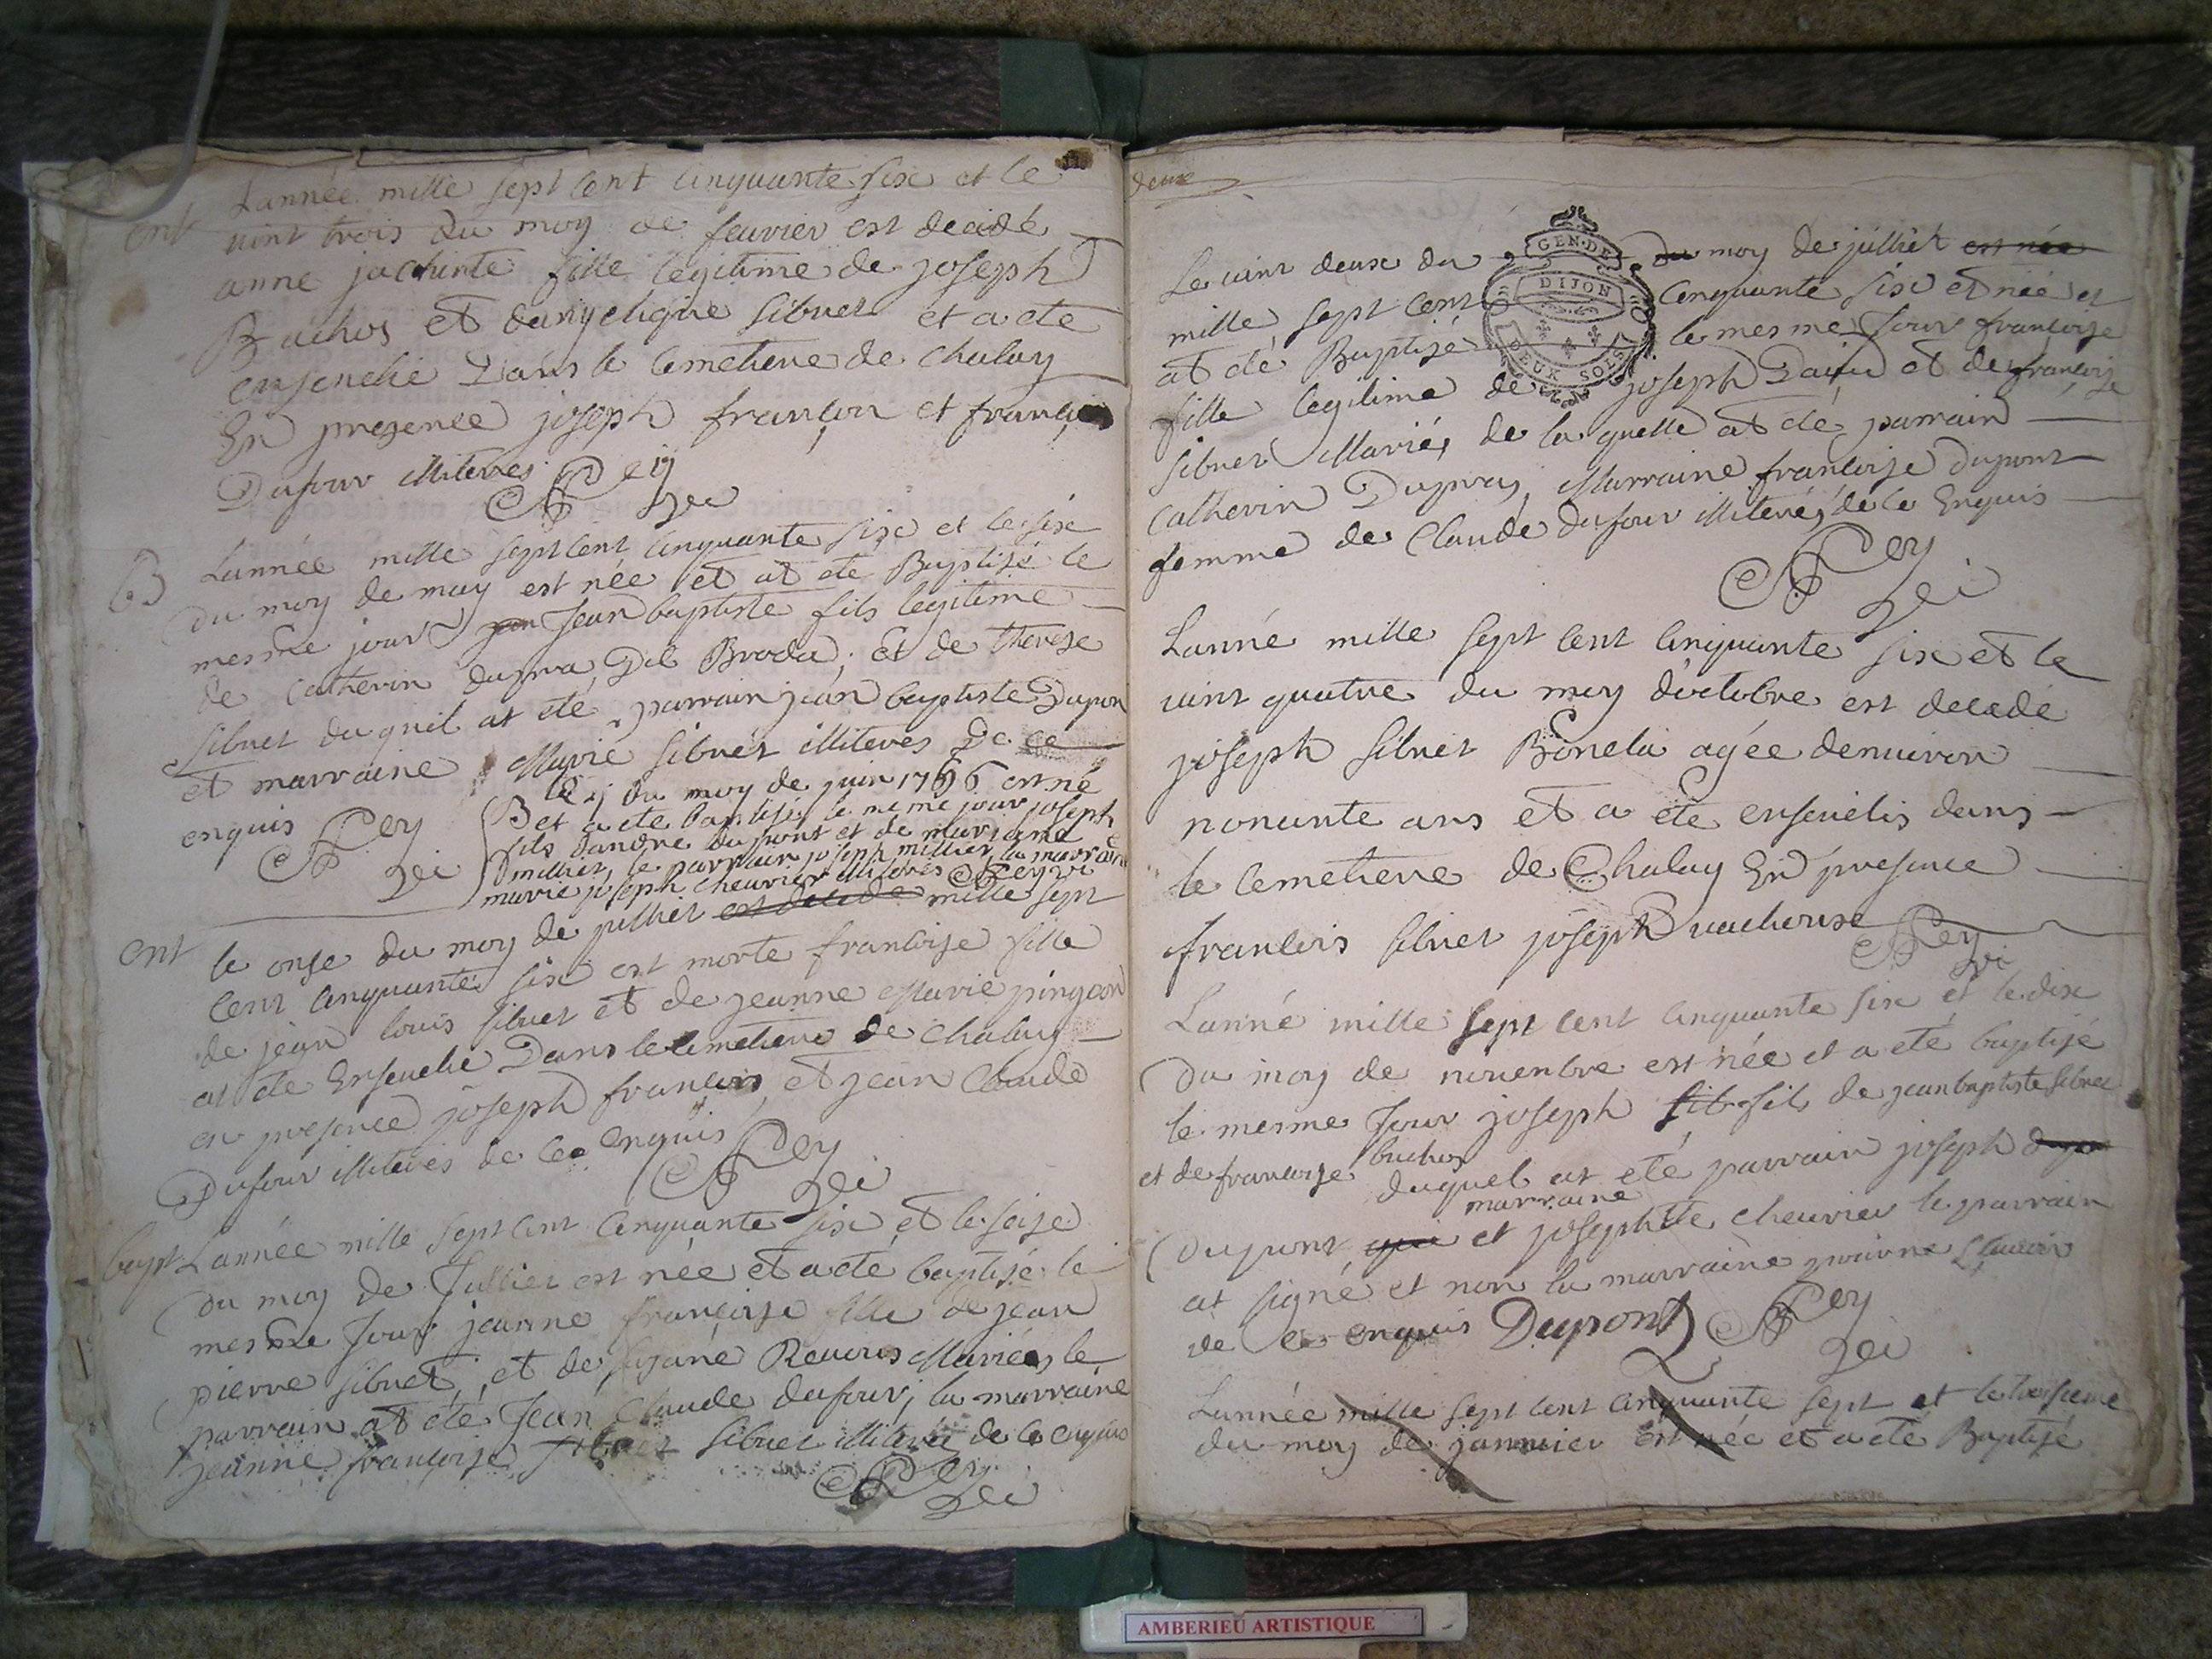 Lannée mille sept cent cinquante six et le
ent vint trois du moy de feuvrier est decidé
anne jachinte fille legitime de joseph
Buchos et dangelique sibuet et a eté
enseuelie Dans le cemetiere de chaluy
En presence joseph françon et françois
Dufour illiteres
Rey
B Lannée mille sept cent cinquante six et le six
du moy de may est née et at eté Baptisé le
mesme jour Jean baptiste fils legitime
de Catherin dupra Dit Broda, et de therese
sibuet du quel at eté parrain jean baptiste Dupon
et marraine Marie sibuet illiteres De ce
enquis Rey
B le du moy de juin 1756 est né
et a eté baptisé le meme jour joseph
fils dandre dupont et de
millier, le parrain joseph millier la marraine
marie joseph cheurier Rey
ent le onse du moy de julliet est decide mille sept
cent cinquante six est morte francoise fille
de jean louis sibuet et de jeanne Marie pingeon
at eté Enseuelie Dans le cemetiere de chaluy
en presence joseph françois et jean Claude
Dufour illiteres de ce enquis
Rey
bapt Lannée mille sept cent cinquante six et le seise
du moy de Julliet est née et a eté baptisé le
mesme Jour jeanne françoise fille de jean
pierre sibuet, et de Mariés, le
parrain at eté Jean Claude dufour, la marraine
jeanne françoise sibuet illiteré de ce enquis
Rey
deux
GEN. DE
DIJON
DEUX SOLS
Le vint deux du du moy de julliet est née
mille sept cent cinquante six et née et
at eté Baptisé le mesme Jour francoise
fille legitime de joseph et de françoise
sibuet Mariés, de la quelle at eté parrain
Catherin Dupray, Marraine francoise dupont
femme de Claude dufour illiterés de ce Enquis
Rey
Lanné mille sept cent cinquante six et le
vint quatre du moy doctobre est decedé
joseph sibuet Bonela agée denuiron
nonante ans et a eté enseuelis dans
le cemetiere de Chaluy En presence
francois sibuet joseph
Rey
Lanné mille sept cent cinquante six et le dix
du moy de nouembre est née et a eté baptisé
le mesme Jour joseph fils de jean baptiste sibuet
et de francoise buchos duquel at eté parrain joseph
marraine
dupont et josephte cheurier le parrain
at signé et non la marraine
de ce enquis Dupont Rey
Lannée mille sept cent cinquante sept et le troisieme
du moy de januier est née et a eté Baptisé
AMBERIEU ARTISTIQUE